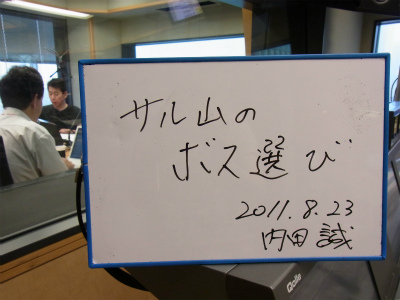 サル山の
ボス選び
2011.8.23
内田 誠